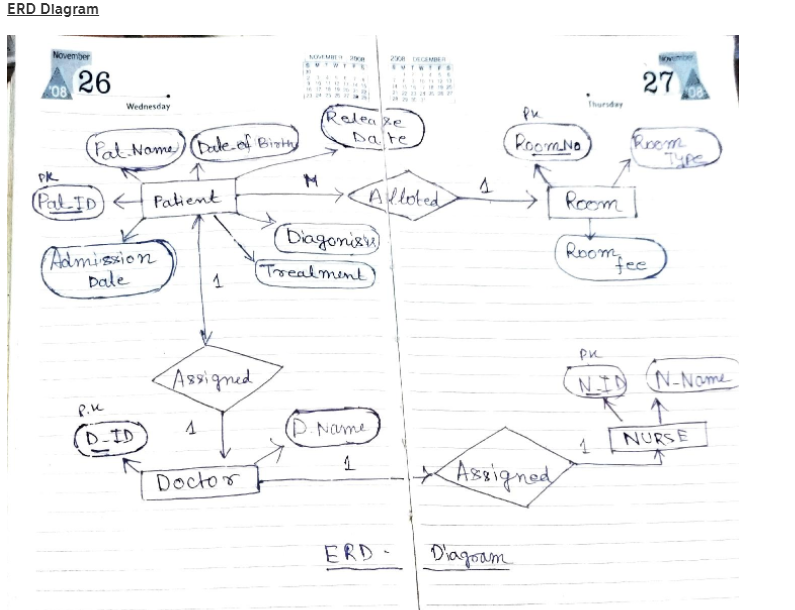 ERD Diagram
November
'08 26
Wednesday
NOVEMBER 2008
2008 DECEMBER
S M T W T F S
27
'08
Thursday
Release
Date
Pat_Name
Date of Birth
PK
Room_No
Room
Type
PK
Pat_ID
Patient
M
Alloted
1
Room
Admission
Date
Diagonisis
Treatment
Room
fee
1
Assigned
PK
N_ID
N-Name
P.K
D_ID
1
D.Name
1
NURSE
Doctor
1
Assigned
ERD - Diagram